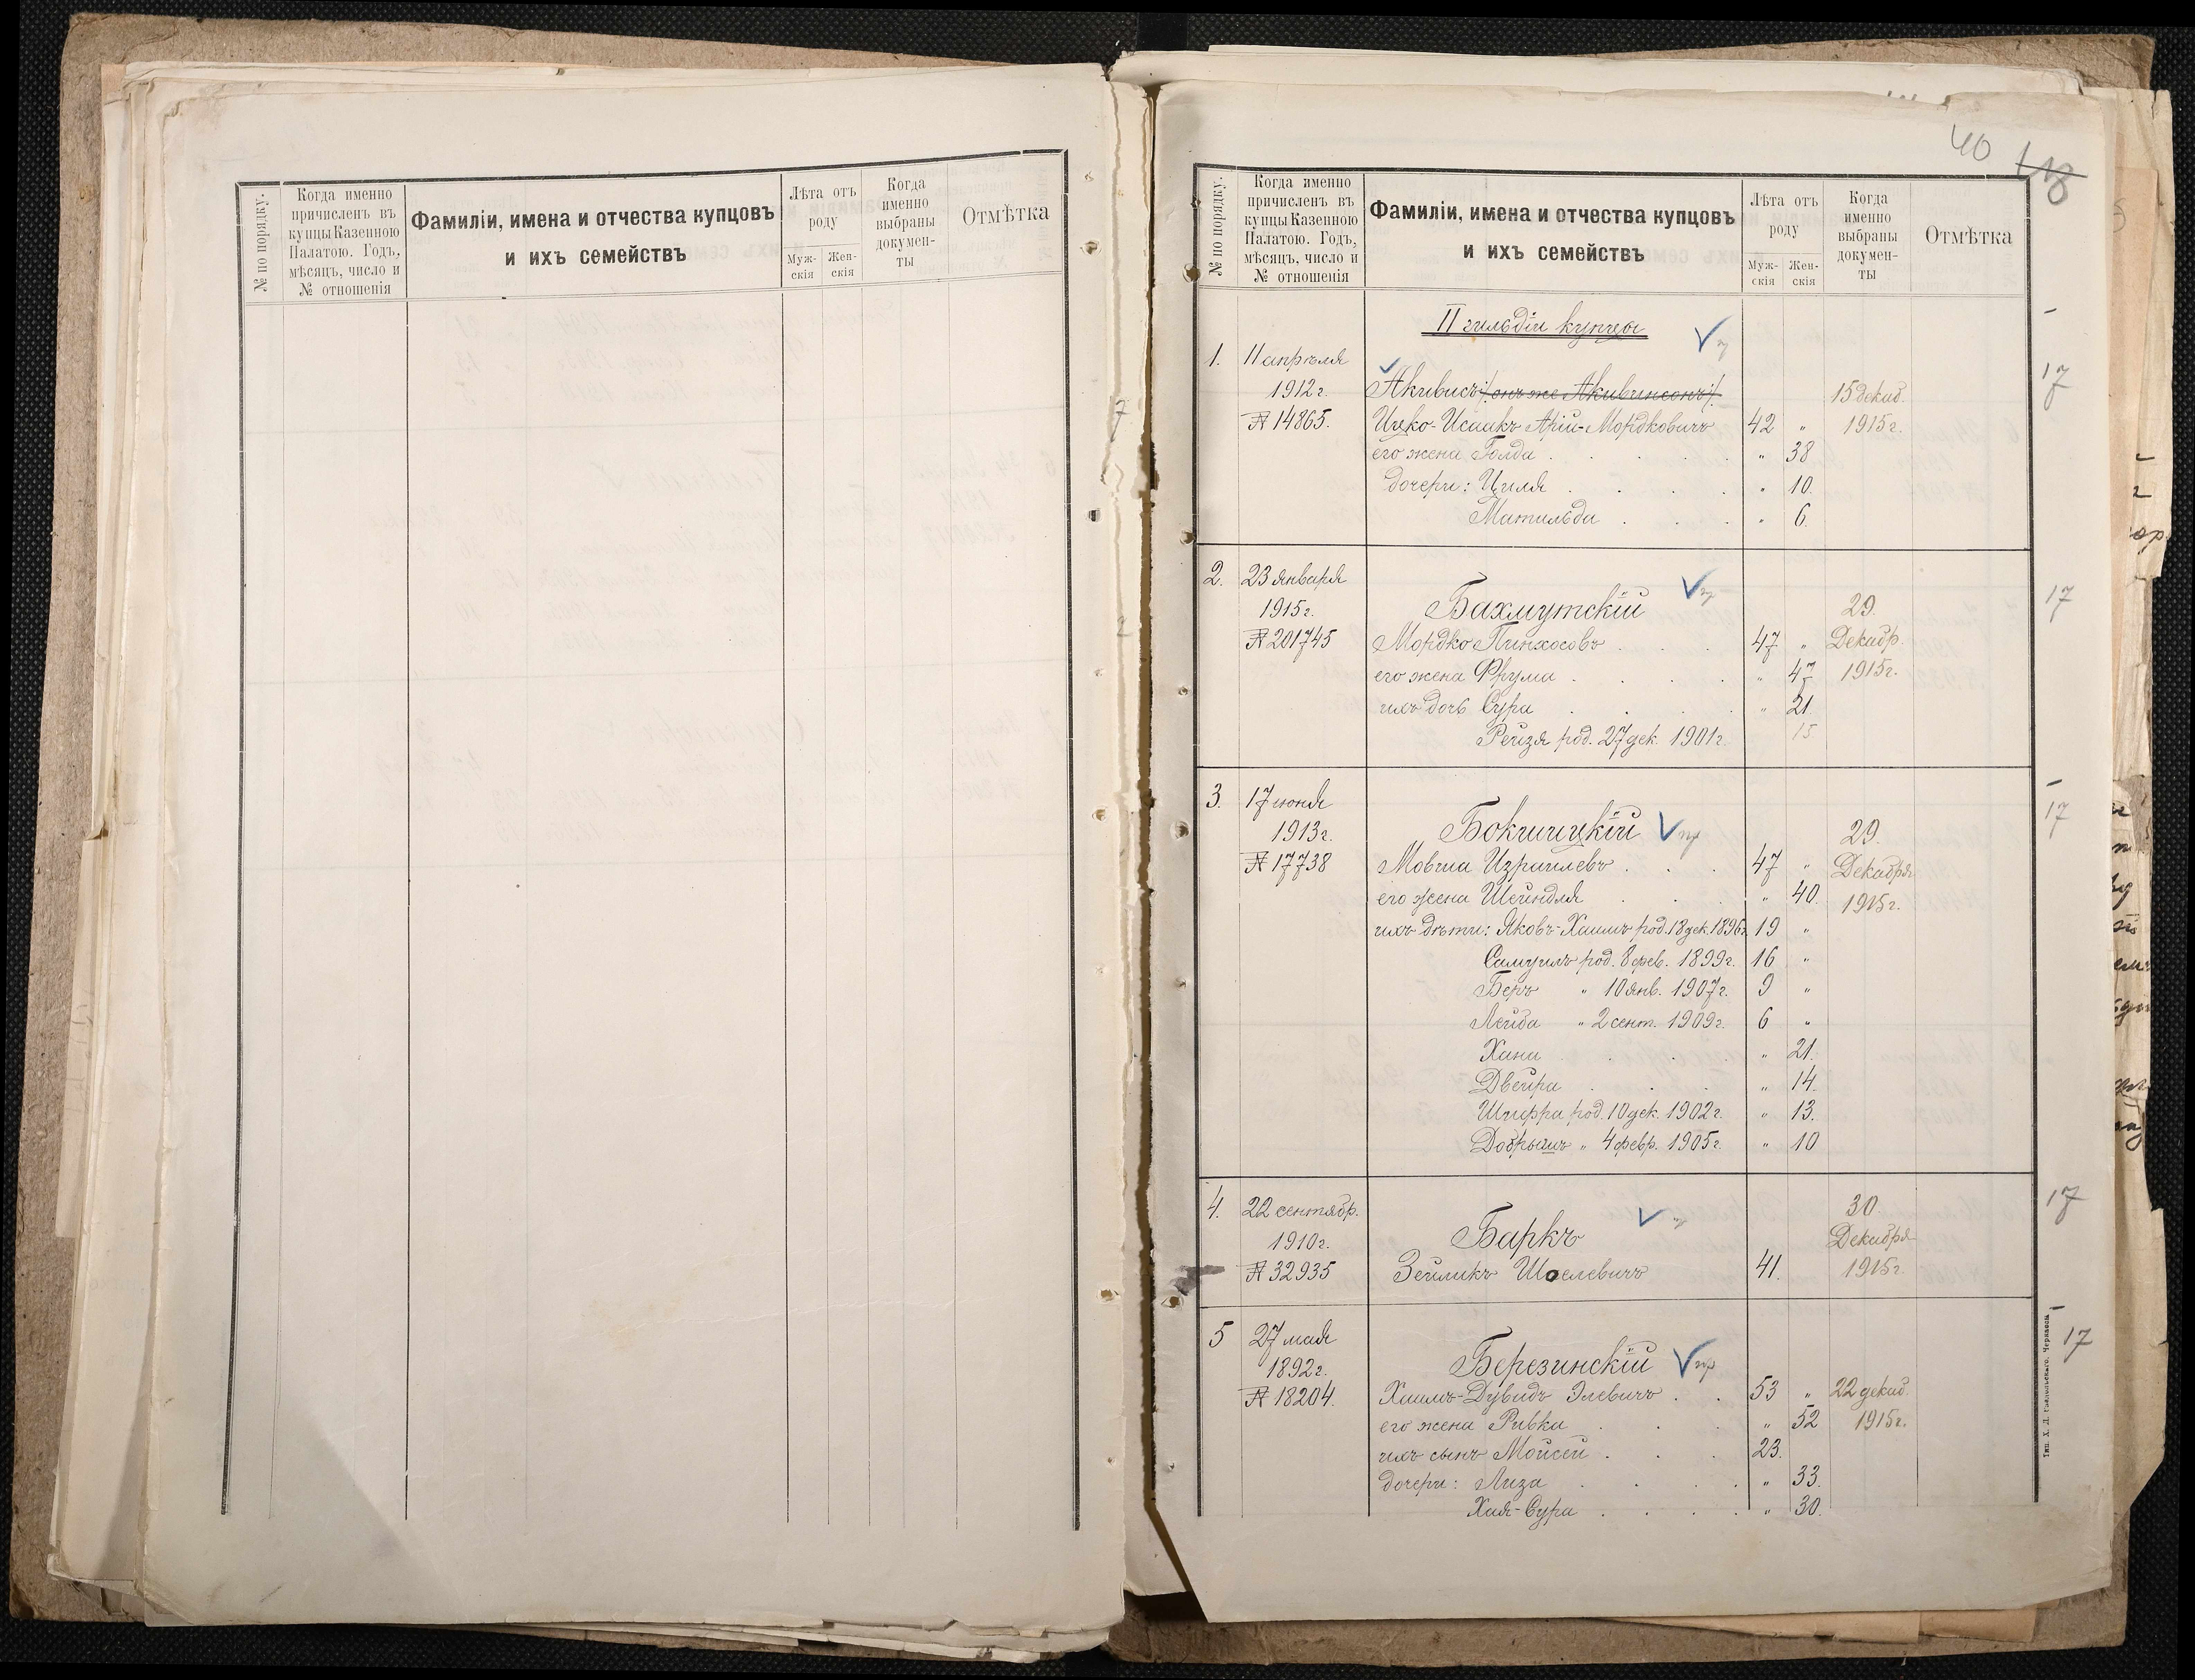 № по порядку.
Когда именно
причисленъ въ
купцы Казенною
Палатою. Годъ,
мѣсяцъ, число и
№ отношенія
Фамиліи, имена и отчества купцовъ
и ихъ семействъ
Лѣта отъ
роду
Муж-
скія
Жен-
скія
Когда
именно
выбраны
докумен-
ты
Отмѣтка
40
118
№ по порядку.
Когда именно
причисленъ въ
купцы Казенною
Палатою. Годъ,
мѣсяцъ, число и
№ отношенія
Фамиліи, имена и отчества купцовъ
и ихъ семействъ
Лѣта отъ
роду
Муж-
скія
Жен-
скія
Когда
именно
выбраны
докумен-
ты
Отмѣтка
II гильдіи купцы
1. 11 апрѣля
1912 г. Акивисъ /онъ же Акивинсонъ/. 15 декаб. 17
№ 14865. Ицко-Исаакъ Арій-Мордковичъ 42 " 1915 г.
его жена Голда . . . . " 38
дочери: Циля . . . . " 10.
Матильда . . . " 6.
2. 23 января
1915 г. Бахмутскій 29. 17
№ 201745 Мордко Пинхосовъ . . . 47 " Декабр.
его жена Фрума . . . . " 47 1915 г.
ихъ дочь Сура . . . . " 21
Рейзя род. 27 дек. 1901 г. 15
3. 17 іюня
1913 г. Бокшицкій пр 29. 17
№ 17738 Мовша Израилевъ . . . 47 " Декабря
его жена Шейндля . . . " 40. 1915 г.
ихъ дѣти: Яковъ-Хаимъ род. 18 дек. 1896 г. 19 "
Самуилъ род. 8 фев. 1899 г. 16 "
Беръ " 10 янв. 1907 г. 9 "
Лейба " 2 сент. 1909 г. 6 "
Хана . . . . " 21.
Двейра . . . " 14.
Шифра род. 10 дек. 1902 г. " 13.
Добрышъ " 4 февр. 1905 г. " 10
4. 22 сентябр. 30. 17
1910 г. Баркъ Декабря
№ 32935 Зейликъ Шоелевичъ 41. 1915 г.
5 27 мая 17
1892 г. Березинскій пр
№ 18204. Хаимъ-Дувидъ Элевичъ . . 53 " 22 декаб.
его жена Ривка . . . " 52 1915 г.
ихъ сынъ Мойсей . . . 23.
дочери: Лиза . . . . " 33.
Хая-Сура . . . . " 30.